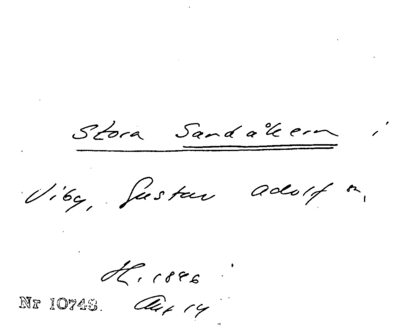 Stora Sandåkern i
Viby, Gustav Adolf sn,
H. 1896
Nr 10748. Auf 14